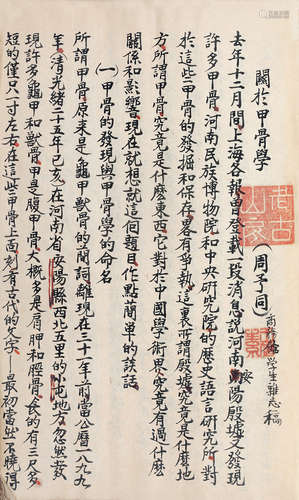 關於甲骨學
(周予同)
商務館學生雜志稿
去年十二月間上海各報曾登載一段消息說河南安陽殷墟發現
許多甲骨河南民族博物院和中央研究院的歷史語言研究所對
於這些甲骨的發掘和保存畧有爭執這裏所謂殷墟究竟是什麼地
方所謂甲骨究竟是什麼東西它對於中國學術界究竟有過什麼
關係和影響現在就想就這個題目作點簡單的談話
(一)甲骨的發現與甲骨學的命名
所謂甲骨原來是龜甲獸骨的簡詞離現在三十一年前當公曆一八九九
年(清光緒二十五年己亥)在河南省安陽縣西北五里的小屯地方忽然發
現許多龜甲和獸骨甲是腹甲骨大概多是肩胛和脛骨長的有三尺多
短的僅只一寸左右在這些甲骨上面刻有古代的文字最初當然不曉得